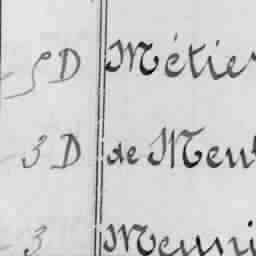 5 D Métier
3 D de Meu
3 Meuni